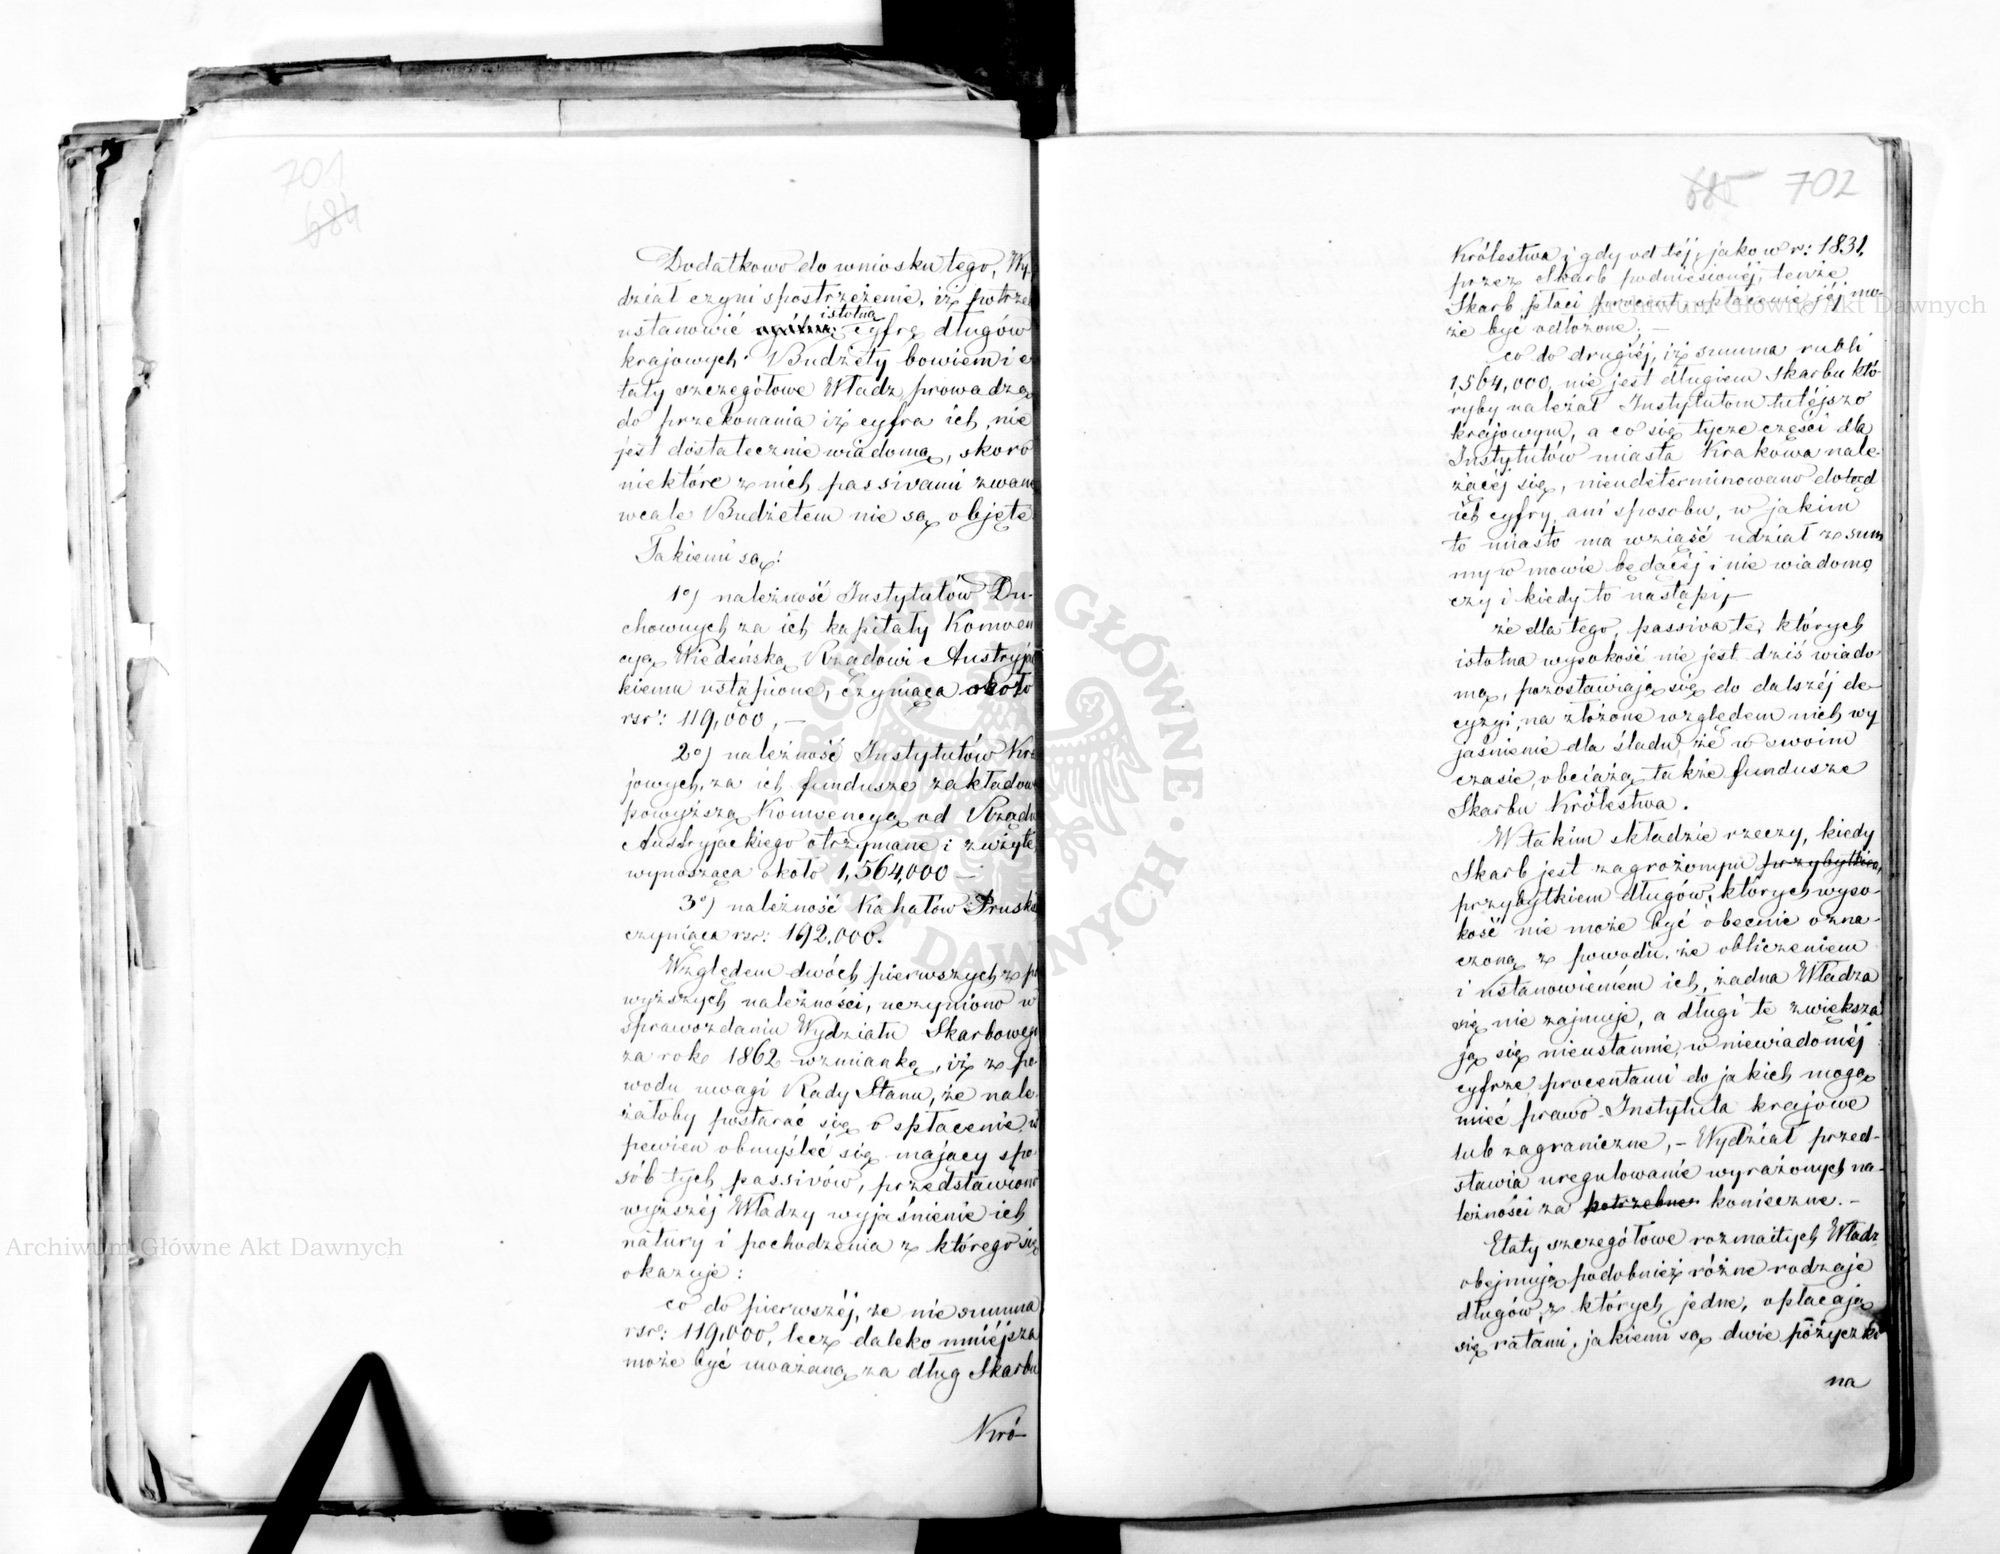 701
684
Dodatkowo do wniosku tego, Wy-
dział czyni spostrzeżenie, iż potrze
istotną
ustanowić cyfrę długów
krajowych. Budżety bowiem i e
taty szczegółowe Władz, prowadzą
do przekonania iż cyfra ich, nie
jest dostatecznie wiadomą, skoro
niektóre z nich passivami zwane
wcale Budżetem nie są objęte
Takiemi są:
1o/ należność Instytutów Du-
chownych za ich kapitały Konwen
cyą Wiedeńską Rządowi Austryja
kiemu ustąpione, czyniąca około
rsr: 119,000, —
2o/ należność Instytutów Kra
jowych, za ich fundusze zakładow
powyższą Konwencyą od Rządu
Austryjackiego otrzymane i zużyte
wynosząca około 1,564,000 —
3o/ należność Kahałów Prusk
czyniąca rsr: 192,000.
Względem dwóch pierwszych z po
wyższych należności, uczyniono w
sprawozdaniu Wydziału Skarbowego
za rok 1862 wzmiankę, iż z po
wodu uwagi Rady Stanu, że nale-
żałoby postarać się o spłacenie w
pewien obmyśleć się mający spo-
sób tych passivów, przedstawiono
wyższéj Władzy wyjaśnienie ich
natury i pochodzenia z którego się
okazuje:
co do pierwszéj, że nie summa
rsr: 119,000, lecz daleko mniéjsza
może być uważaną za dług Skarbu
Kró-
685 702
Królestwa i gdy od téj, jako w r: 1831,
przez Skarb podniesionéj, tenże
Skarb płaci procent, spłacenie jéj mo-
że być odłożone; —
co do drugiéj, iż summa rubli
1564,000, nie jest długiem Skarbu któ-
ryby należał Instytutom tutéjszo
krajowym, a co się tycze części dla
Instytutów miasta Krakowa nale-
żącéj się, nieudeterminowano dotąd
ich cyfry, ani sposobu, w jakim
to miasto ma wziąść udział z sum
my w mowie będącéj i nie wiadomo
czy i kiedy to nastąpi, —
że dla tego, passiva te, których
istotna wysokość nie jest dziś wiado
mą, pozostawiają się do dalszéj de-
cyzyi, na złożone względem nich wy
jaśnienie dla śladu, że w swoim
czasie, obciążą także fundusze
Skarbu Królestwa.
W takim składzie rzeczy, kiedy
Skarb jest zagrożonym przybytkiem,
przybytkiem długów, których wyso-
kość nie może być obecnie ozna-
czoną z powodu, że obliczeniem
i ustanowieniem ich, żadna Władza
się nie zajmuje, a długi te zwiększa
ją się nieustannie, w niewiadoméj
cyfrze, procentami do jakich mogą
mieć prawo Instytuta krajowe
lub zagraniczne, — Wydział przed-
stawia uregulowanie wyrażonych na-
leżności za potrzebne konieczne. —
Etaty szczegółowe rozmaitych Władz
obejmują podobnież różne rodzaje
długów, z których jedne, opłacają
się ratami, jakiemi są dwie pożyczki
na
Archiwum Główne Akt Dawnych
Archiwum Główne Akt Dawnych
ARCHIWUM GŁÓWNE AKT DAWNYCH